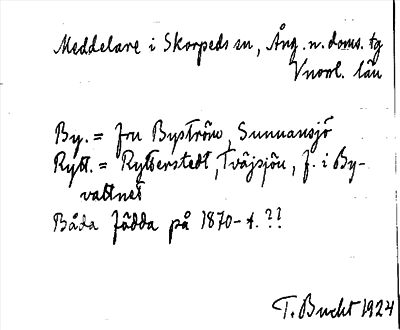 Meddelare i Skorpeds sn, Ång. n. doms. tg
Vnorl. län
By. = fru Byström, Sunnansjö
Rytt. = Rytterstedt, Tväjsjön, f. i By-
vattnet
Båda födda på 1870-t. ??
T. Bucht 1924